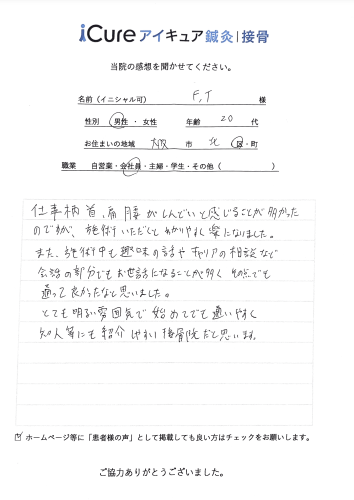 iCureアイキュア鍼灸|接骨
当院の感想を聞かせてください。
名前（イニシャル可） F,T 様
性別 男性・女性 年齢 20 代
お住まいの地域 大阪 市 北 区・町
職業 自営業・会社員・主婦・学生・その他（ ）
仕事柄首、肩腰がしんどいと感じることが多かった
のですが、施術いただくとわかりやすく楽になりました。
また、施術中も趣味の話やキャリアの相談など
会話の部分でもお世話になることが多く その点でも
通って良かったなと思いました。
とても明るい雰囲気で始めてでも通いやすく
知人等にも紹介しやすい接骨院だと思います。
ホームページ等に「患者様の声」として掲載しても良い方はチェックをお願いします。
ご協力ありがとうございました。